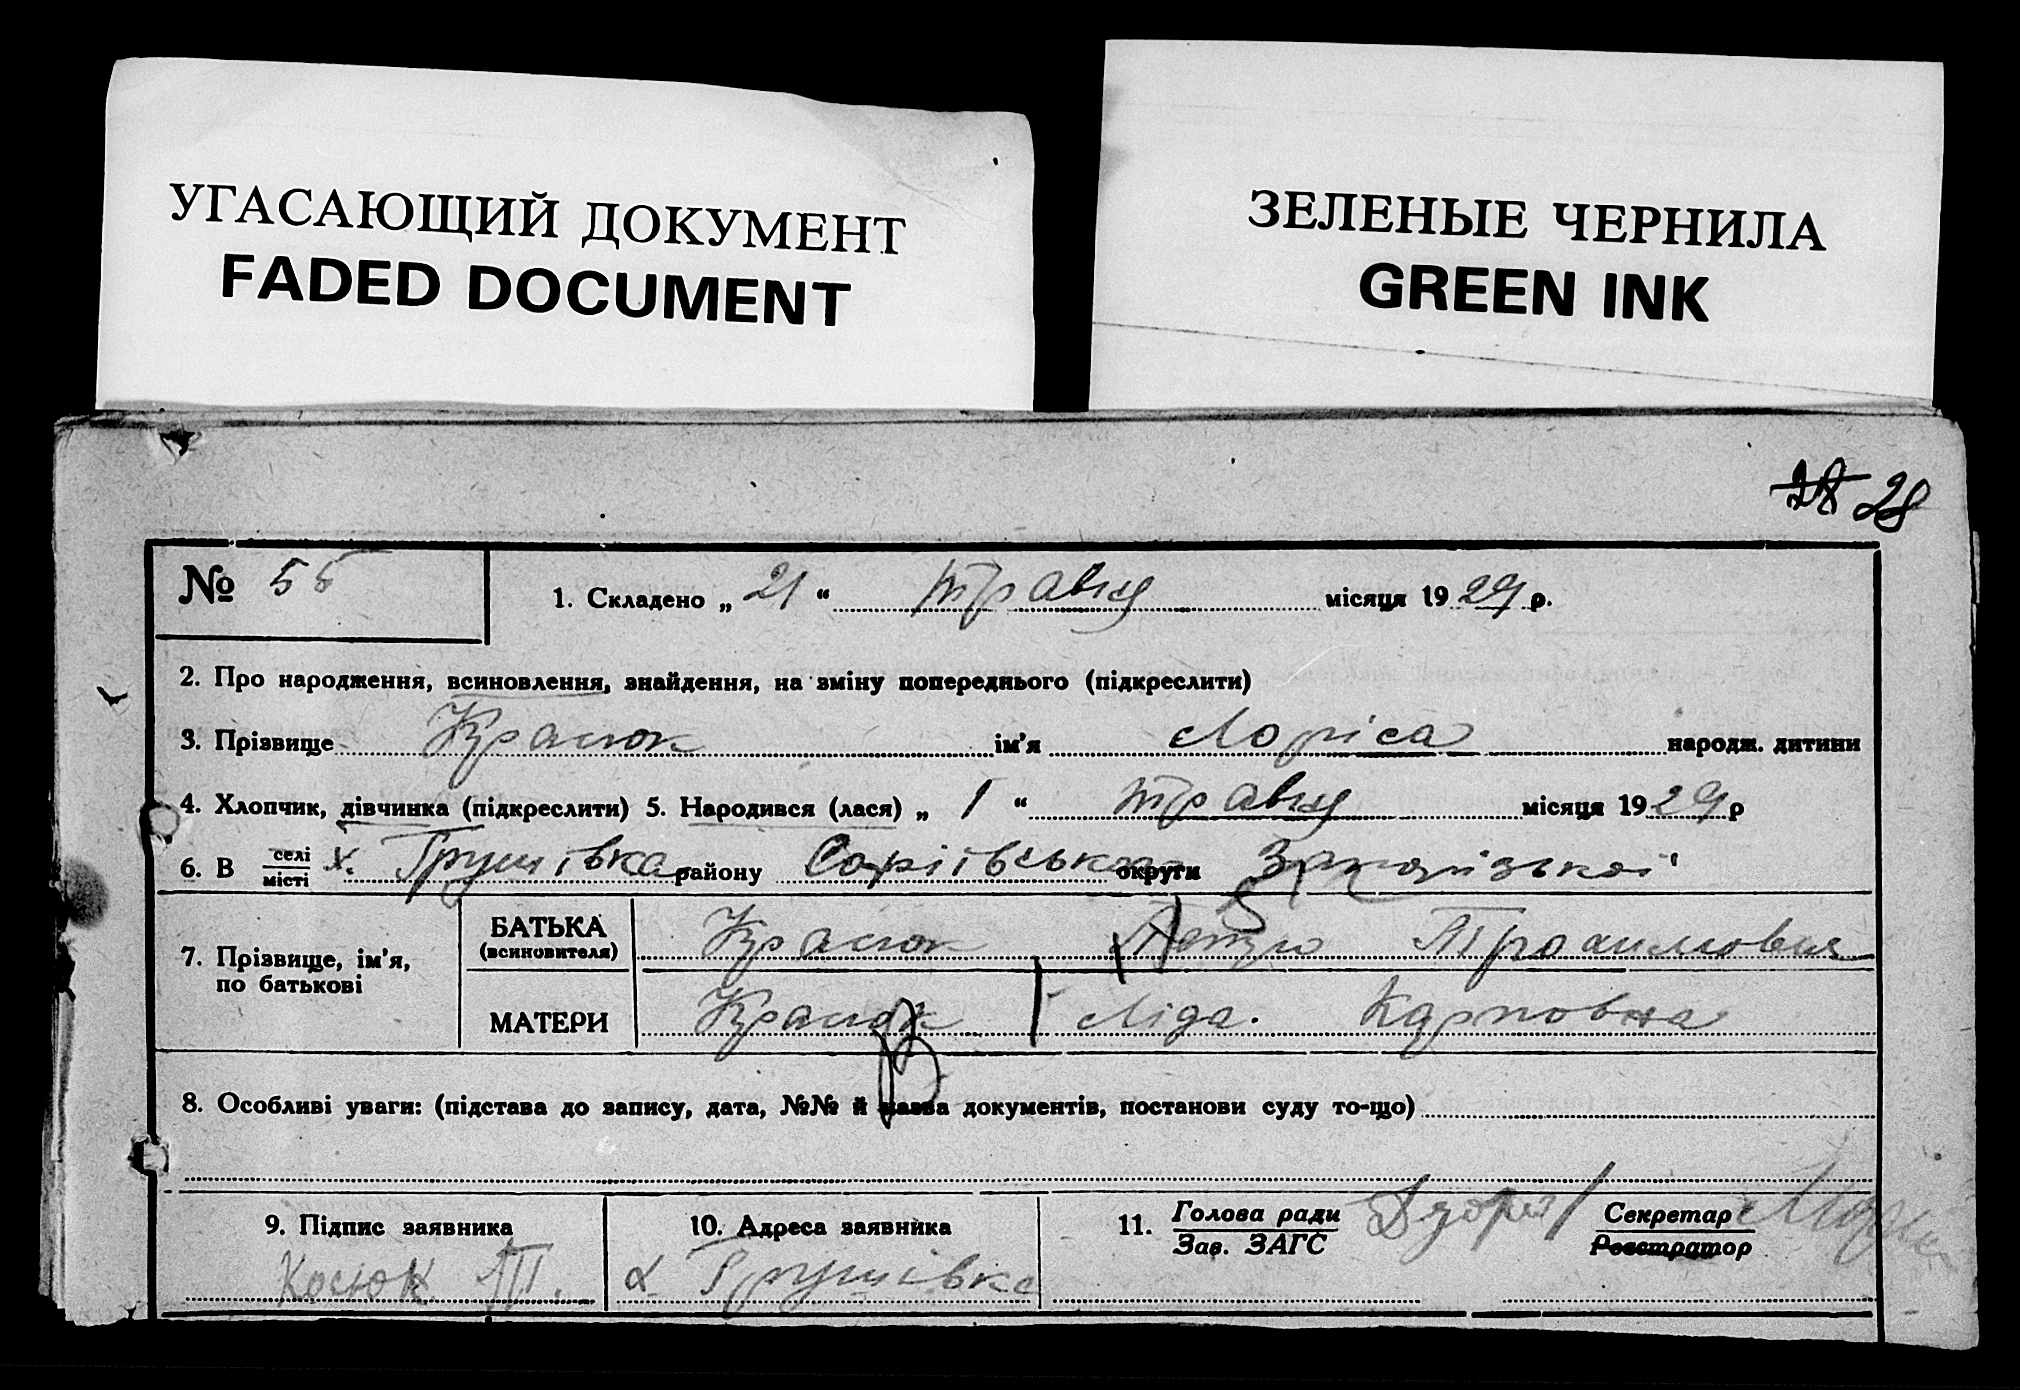 УГАСАЮЩИЙ ДОКУМЕНТ
FADED DOCUMENT
ЗЕЛЕНЫЕ ЧЕРНИЛА
GREEN INK
28
№ 55
1. Складено „ 21 “ травня місяця 1929 р.
2. Про народження, всиновлення, знайдення, на зміну попереднього (підкреслити)
3. Прізвище ім'я Лоріса народж. дитини
4. Хлопчик, дівчинка (підкреслити) 5. Народився (лася) „ 1 “ травня місяця 1929 р
6. В селі місті х. Грушівка району округи
7. Прізвище, ім'я, по батькові
БАТЬКА (всиновителя) Трохимович
МАТЕРИ Ліда. Карповна
8. Особливі уваги: (підстава до запису, дата, №№ й назва документів, постанови суду то-що)
9. Підпис заявника
10. Адреса заявника
11. Голова ради Зав. ЗАГС Секретар Реєстратор
Грушівка